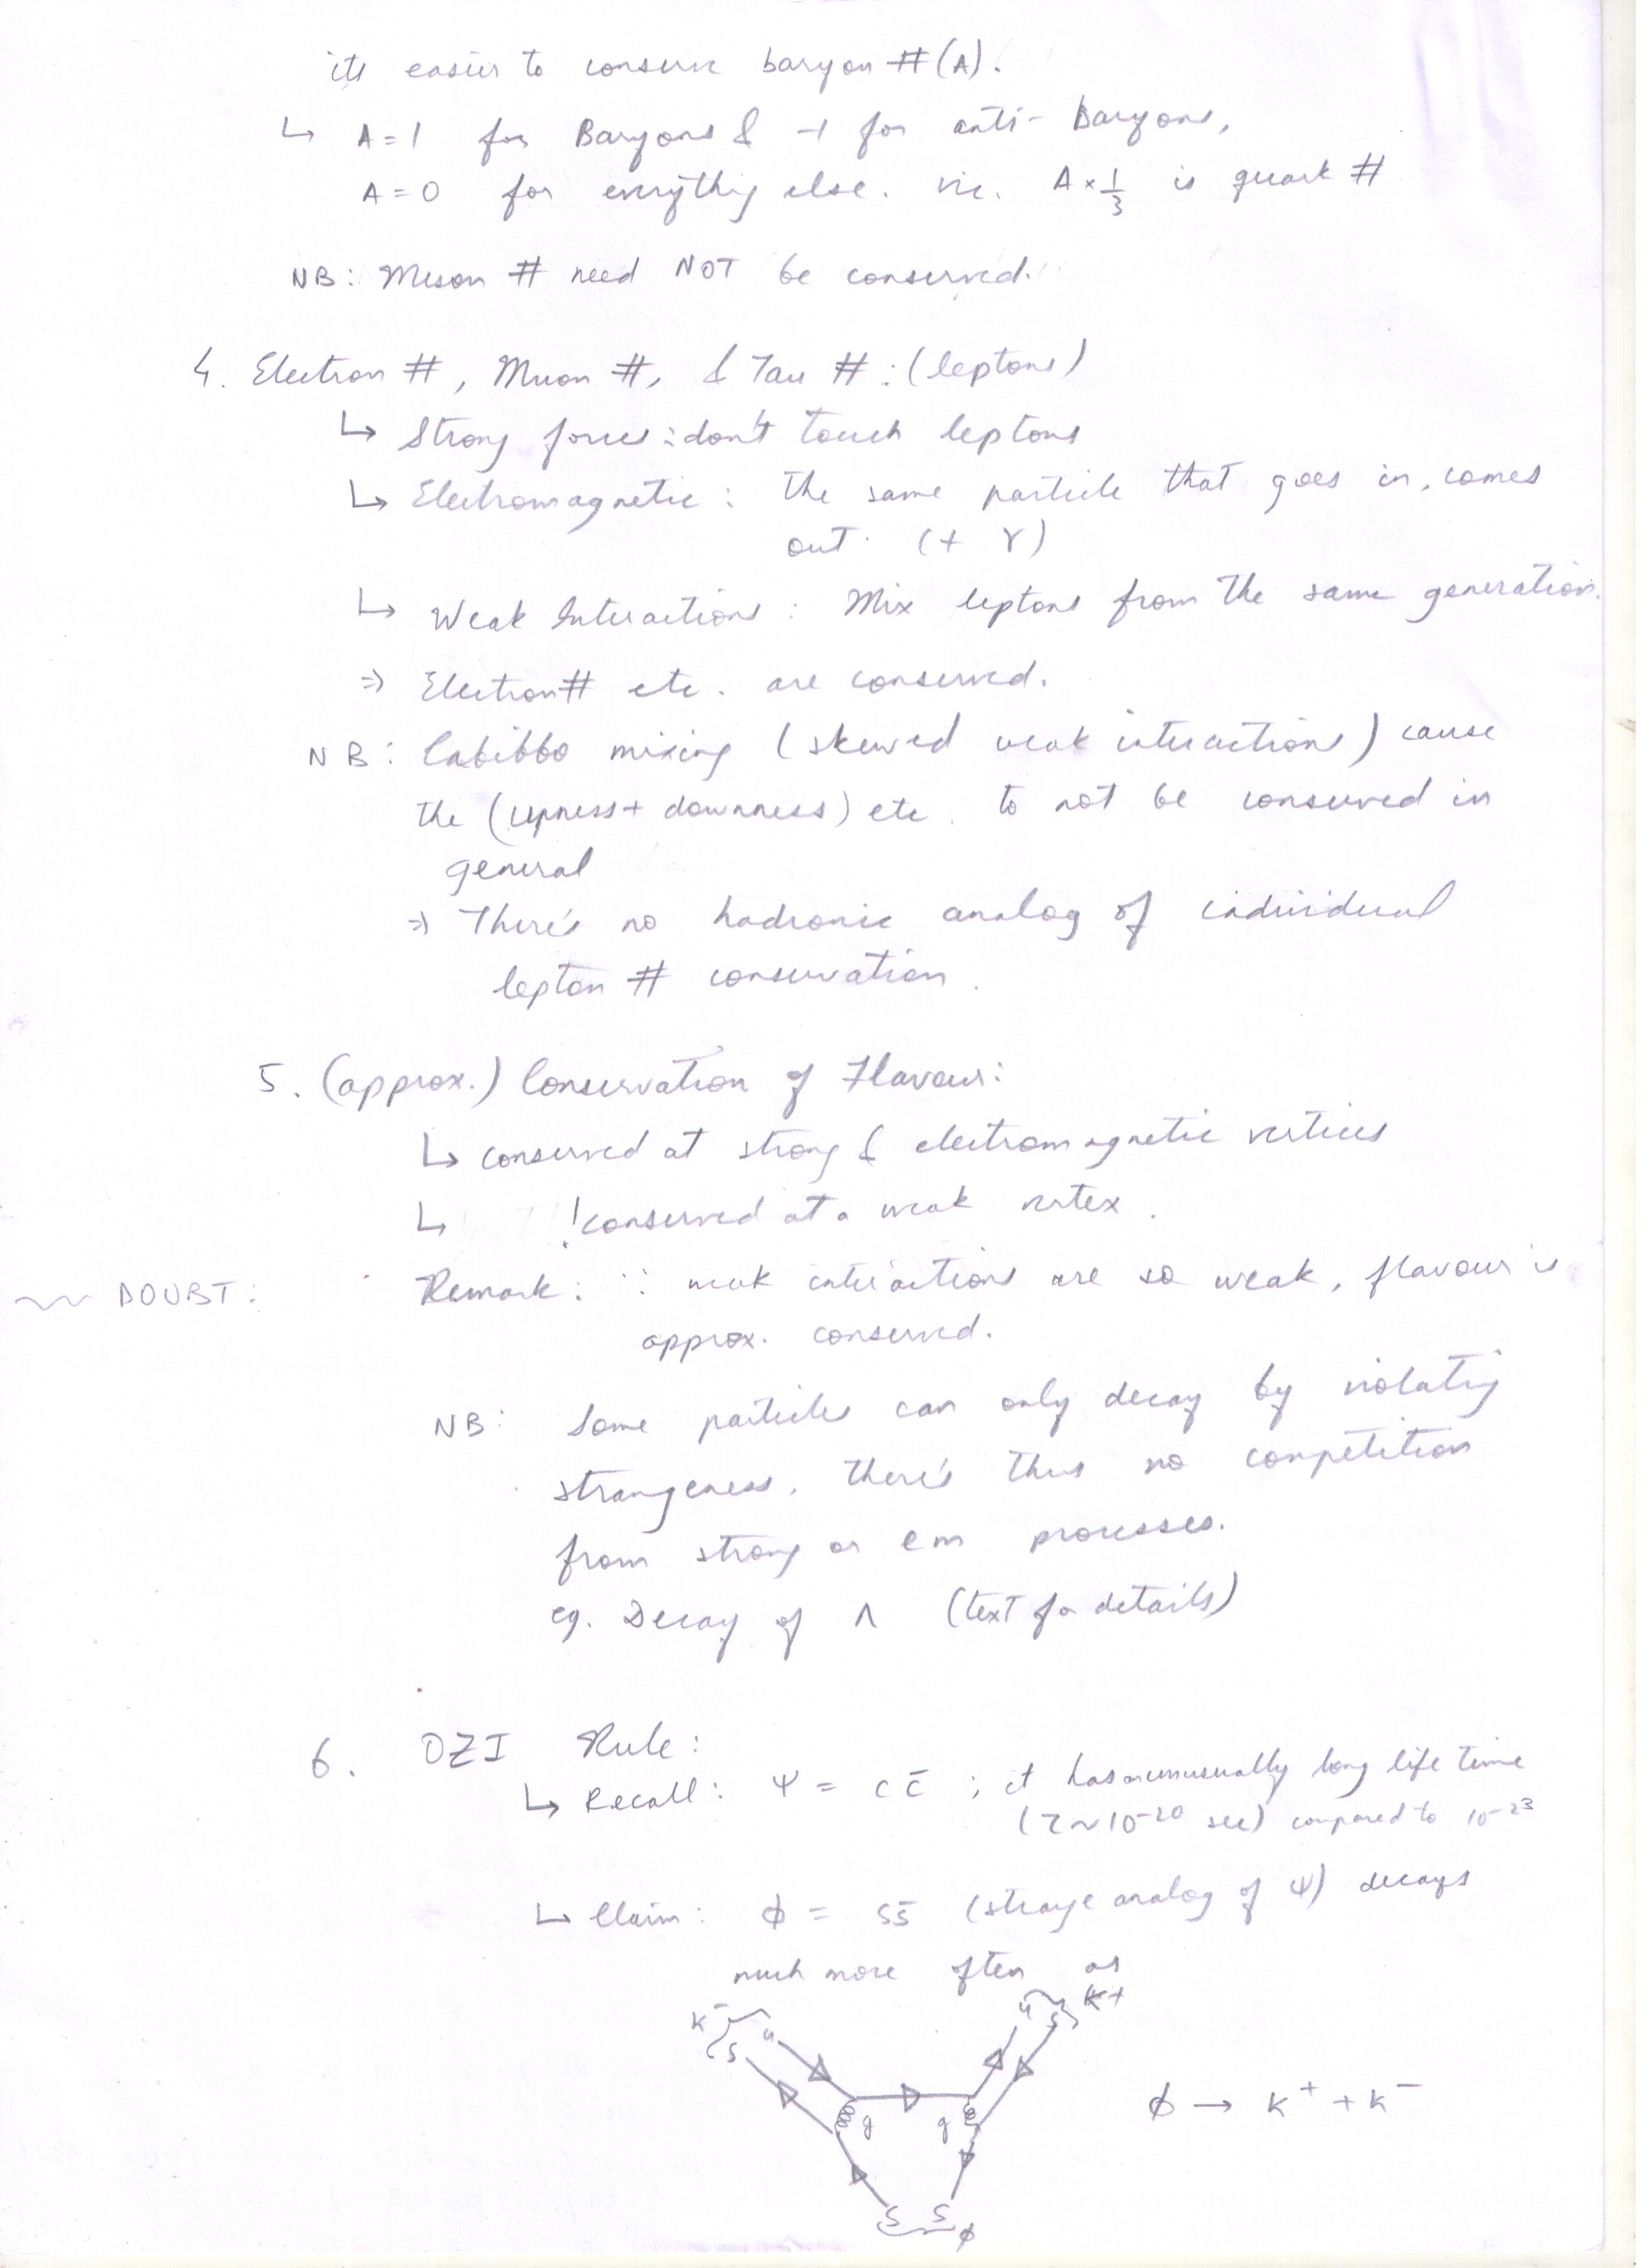 its easier to conserve baryon #(A).
↳ A=1 for Baryons & -1 for anti-Baryons,
A=0 for everything else. viz. A×1/3 is quark #
NB: Meson # need NOT be conserved.
4. Electron #, Muon #, & Tau #: (leptons)
↳ Strong forces: don't touch leptons
↳ Electromagnetic: The same particle that goes in, comes
out. (+ γ)
↳ Weak Interactions: Mix leptons from the same generation.
⇒ Electron# etc. are conserved.
NB: Cabibbo mixing (skewed weak interactions) cause
the (upness+ downness) etc. to not be conserved in
general
⇒ There's no hadronic analog of individual
lepton # conservation.
5. (approx.) Conservation of Flavour:
↳ conserved at strong & electromagnetic vertices
↳ !conserved at a weak vertex.
DOUBT: Remark: ∵ weak interactions are so weak, flavour is
approx. conserved.
NB: Some particles can only decay by violating
strangeness. There's thus no competition
from strong or em processes.
eg. Decay of Λ (text for details)
6. OZI Rule:
↳ Recall: Ψ = c c̄ ; it has an unusually long life time
(τ~10⁻²⁰ sec) compared to 10⁻²³
↳ Claim: ϕ = s s̄ (strange analog of Ψ) decays
much more often as
K⁻ u u K+
s s
g g
ϕ → K⁺ + K⁻
s s
ϕ